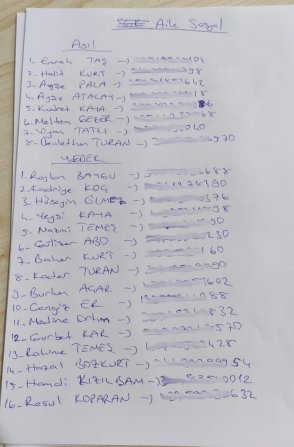 Aile Sosyal
Asıl
1- Emrah TAŞ -> 04
2- Halit KURT -> 98
3- Ayşe PALA -> 642
4- Ayşe ATALAY -> 18
5- Kudret KAYA -> 6
6- Meltem GEZER -> 68
7- TATLI -> 060
8- Devlethan TURAN -> 6970
YEDEK
1- BAYGU -> 688
2- Kadriye KOÇ -> 390
3- Hüseyin GİLMEZ -> 376
4- KAYA -> 98
5- Nazmi TEMEŞ -> 90
6- Gülizar ABO -> 230
7- Bahar KURT -> 160
8- Kader TURAN -> 90
9- Burhan AĞAR -> 3602
10- Cengiz ER -> 88
11- Medine -> 832
12- Gurbet KAR -> 570
13- Rahime TEMEŞ -> 428
14- Hazal BOZKURT -> 954
15- Hamdi KIZILBAM -> 0012
16- Resul KOPARAN -> 632